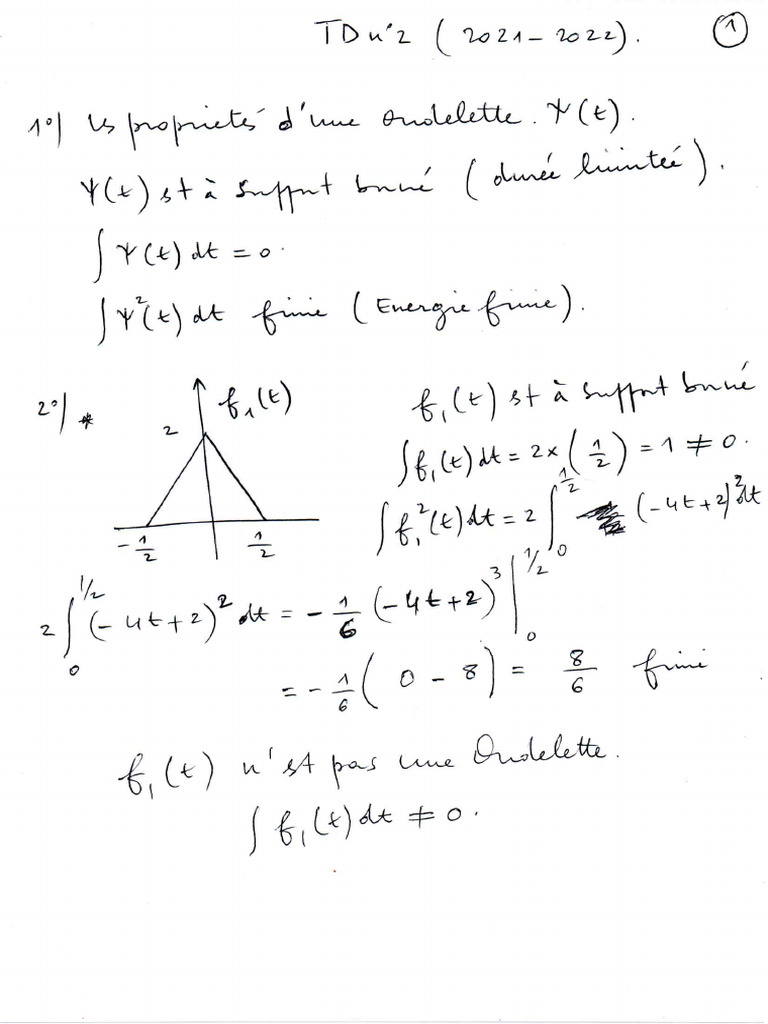 TD n°2 (2021-2022). ①
1°/ Les propriétés d'une ondelette. Ψ(t).
Ψ(t) est à support borné (durée limitée).
∫ Ψ(t) dt = 0.
∫ Ψ²(t) dt finie (Energie finie).
2°/ * f₁(t)
2
-1/2 1/2
f₁(t) est à support borné
∫ f₁(t) dt = 2 × (1/2) = 1 ≠ 0.
∫ f₁²(t) dt = 2 ∫₀^{1/2} (-4t+2)² dt
2 ∫₀^{1/2} (-4t+2)² dt = -1/6 (-4t+2)³ |₀^{1/2}
= -1/6 (0 - 8) = 8/6 finie
f₁(t) n'est pas une Ondelette.
∫ f₁(t) dt ≠ 0.